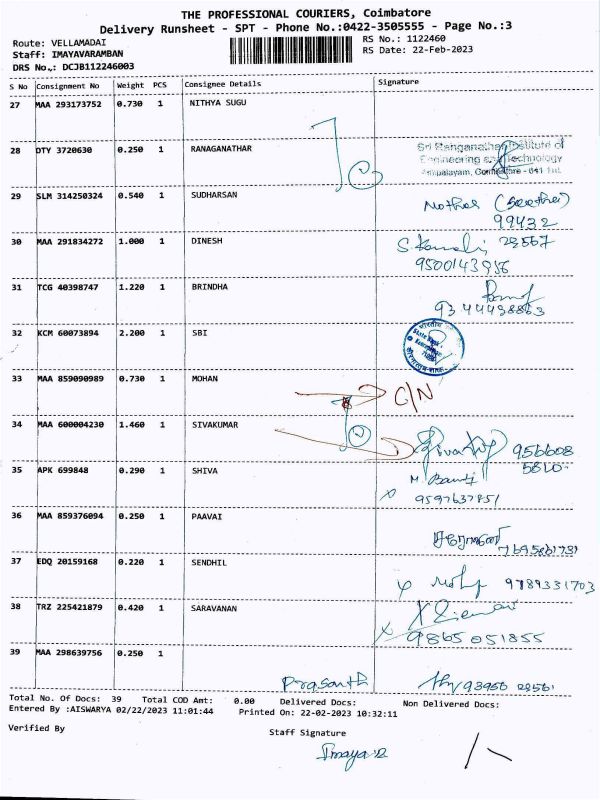 THE PROFESSIONAL COURIERS, Coimbatore
Delivery Runsheet - SPT - Phone No.:0422-3505555 - Page No.:3
Route: VELLAMADAI RS No.: 1122460
Staff: IMAYAVARAMBAN RS Date: 22-Feb-2023
DRS No.,: DCJB112246003
S No Consignment No Weight PCS Consignee Details Signature
27 MAA 293173752 0.730 1 NITHYA SUGU
28 DTY 3720630 0.250 1 RANAGANATHAR
Sri Ranganathar Institute of
Engineering and Technology
29 SLM 314250324 0.540 1 SUDHARSAN Mother
99432
30 MAA 291834272 1.000 1 DINESH 28567
9500143956
31 TCG 40398747 1.220 1 BRINDHA
9344498863
32 KCM 60073894 2.200 1 SBI
33 MAA 859090989 0.730 1 MOHAN C/N
34 MAA 600004230 1.460 1 SIVAKUMAR 956608
5810
35 APK 699848 0.290 1 SHIVA
9597637851
36 MAA 859376094 0.250 1 PAAVAI
37 EDQ 20159168 0.220 1 SENDHIL 9789331703
38 TRZ 225421879 0.420 1 SARAVANAN
9865 051855
39 MAA 298639756 0.250 1
Prasanth
Total No. Of Docs: 39 Total COD Amt: 0.00 Delivered Docs: Non Delivered Docs:
Entered By :AISWARYA 02/22/2023 11:01:44 Printed On: 22-02-2023 10:32:11
Verified By Staff Signature